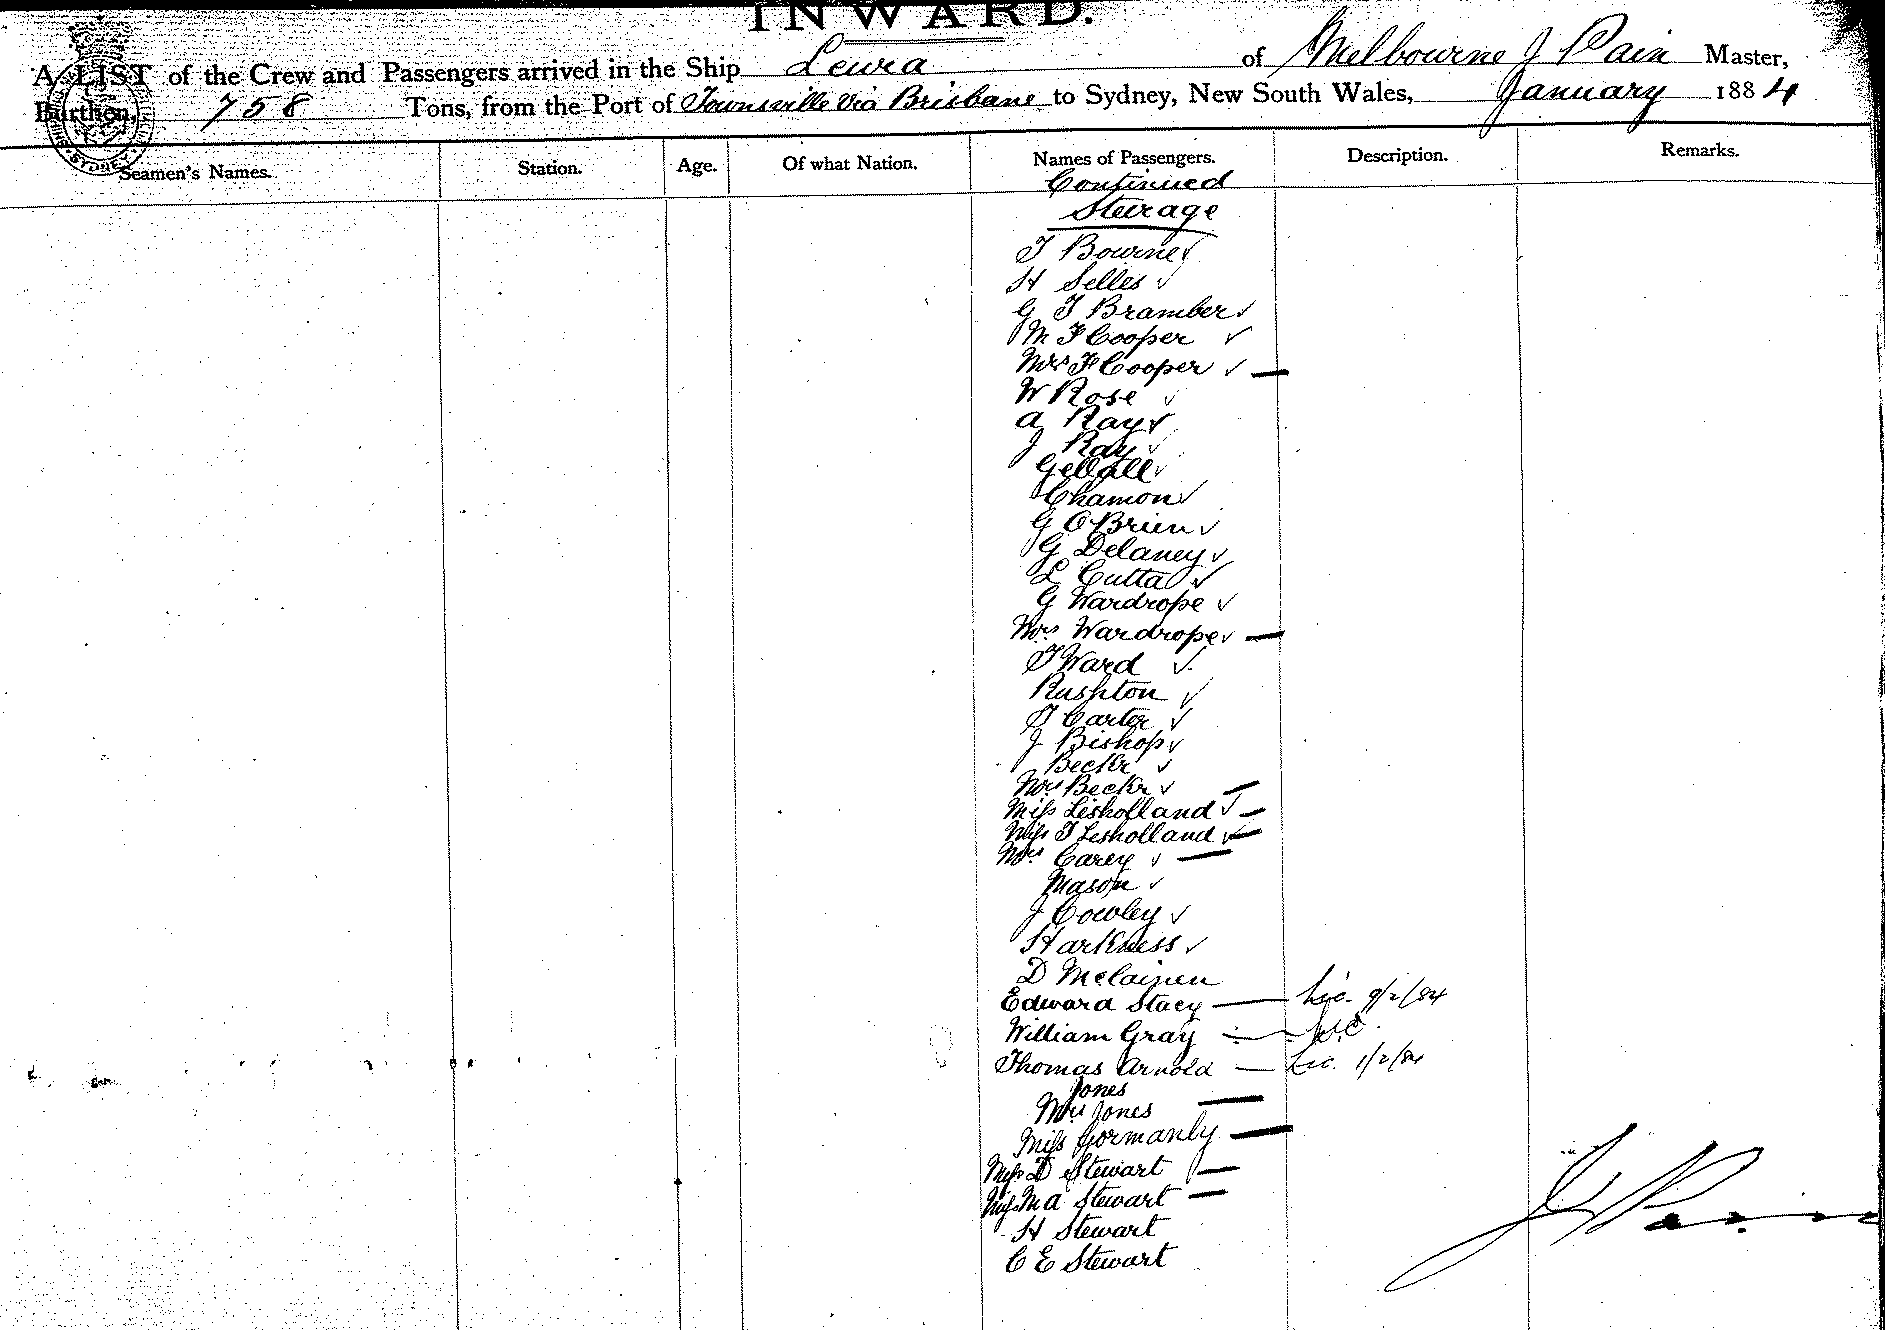 INWARD.
A LIST of the Crew and Passengers arrived in the Ship Leura of Melbourne J Pain Master,
Burthen, 758 Tons, from the Port of Townsville via Brisbane to Sydney, New South Wales, January 1884
Seamen's Names. Station. Age. Of what Nation. Names of Passengers. Description. Remarks.
Continued
Steerage
T Bourne
H Selles
G T Bramber
M F Cooper
Mrs F Cooper
W Rose
A Ray
J Ray
Chamon
G O'Brien
G Delaney
L Cutta
G Wardrope
Mrs Wardrope
T Ward
Rushton
T Carter
J Bishop
Beckr
Mrs Beckr
Miss Lisholland
Miss T Lisholland
Mrs Carey
Mason
J Cowley
Harkness
D
Edward Stacy — Lic. 9/2/84
William Gray
Thomas Arnold — Lic. 1/2/84
Jones
Mrs Jones
Miss Gormanly
Miss D Stewart
Miss M A Stewart
H Stewart
C E Stewart
J Pain
SYDNEY